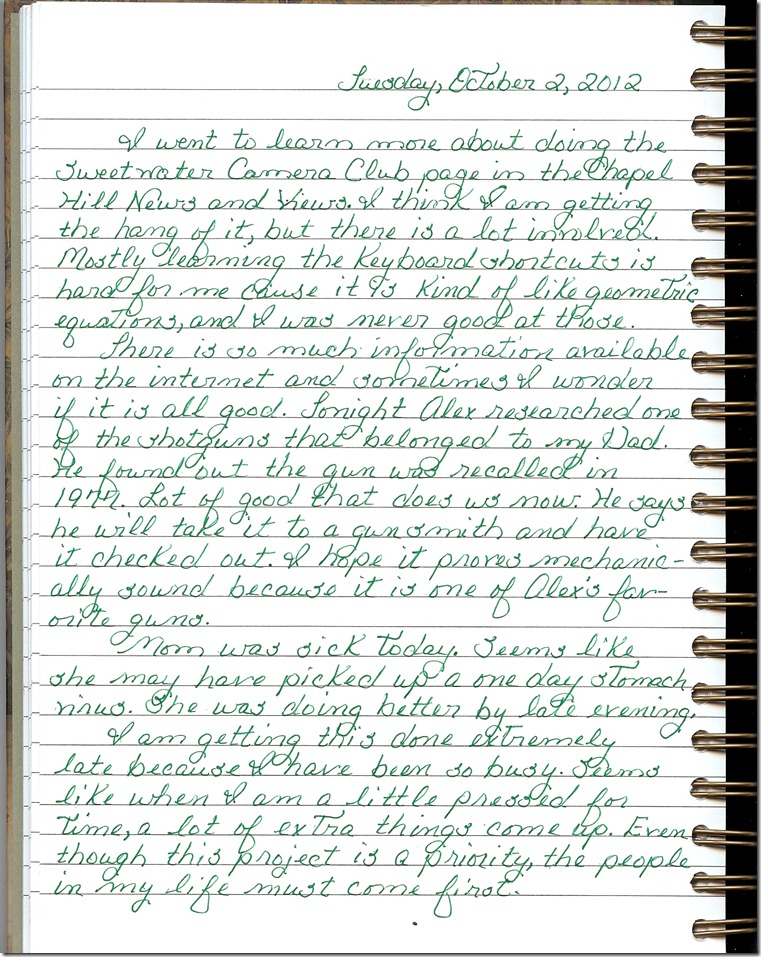 Tuesday, October 2, 2012
I went to learn more about doing the
Sweetwater Camera Club page in the Chapel
Hill News and Views. I think I am getting
the hang of it, but there is a lot involved.
Mostly learning the Keyboard shortcuts is
hard for me cause it is kind of like geometric
equations, and I was never good at those.
There is so much information available
on the internet and sometimes I wonder
if it is all good. Tonight Alex researched one
of the shotguns that belonged to my Dad.
He found out the gun was recalled in
1977. Lot of good that does us now. He says
he will take it to a gunsmith and have
it checked out. I hope it proves mechanic-
ally sound because it is one of Alex's fav-
orite guns.
Mom was sick today. Seems like
she may have picked up a one day stomach
virus. She was doing better by late evening.
I am getting this done extremely
late because I have been so busy. Seems
like when I am a little pressed for
time, a lot of extra things come up. Even
though this project is a priority, the people
in my life must come first.